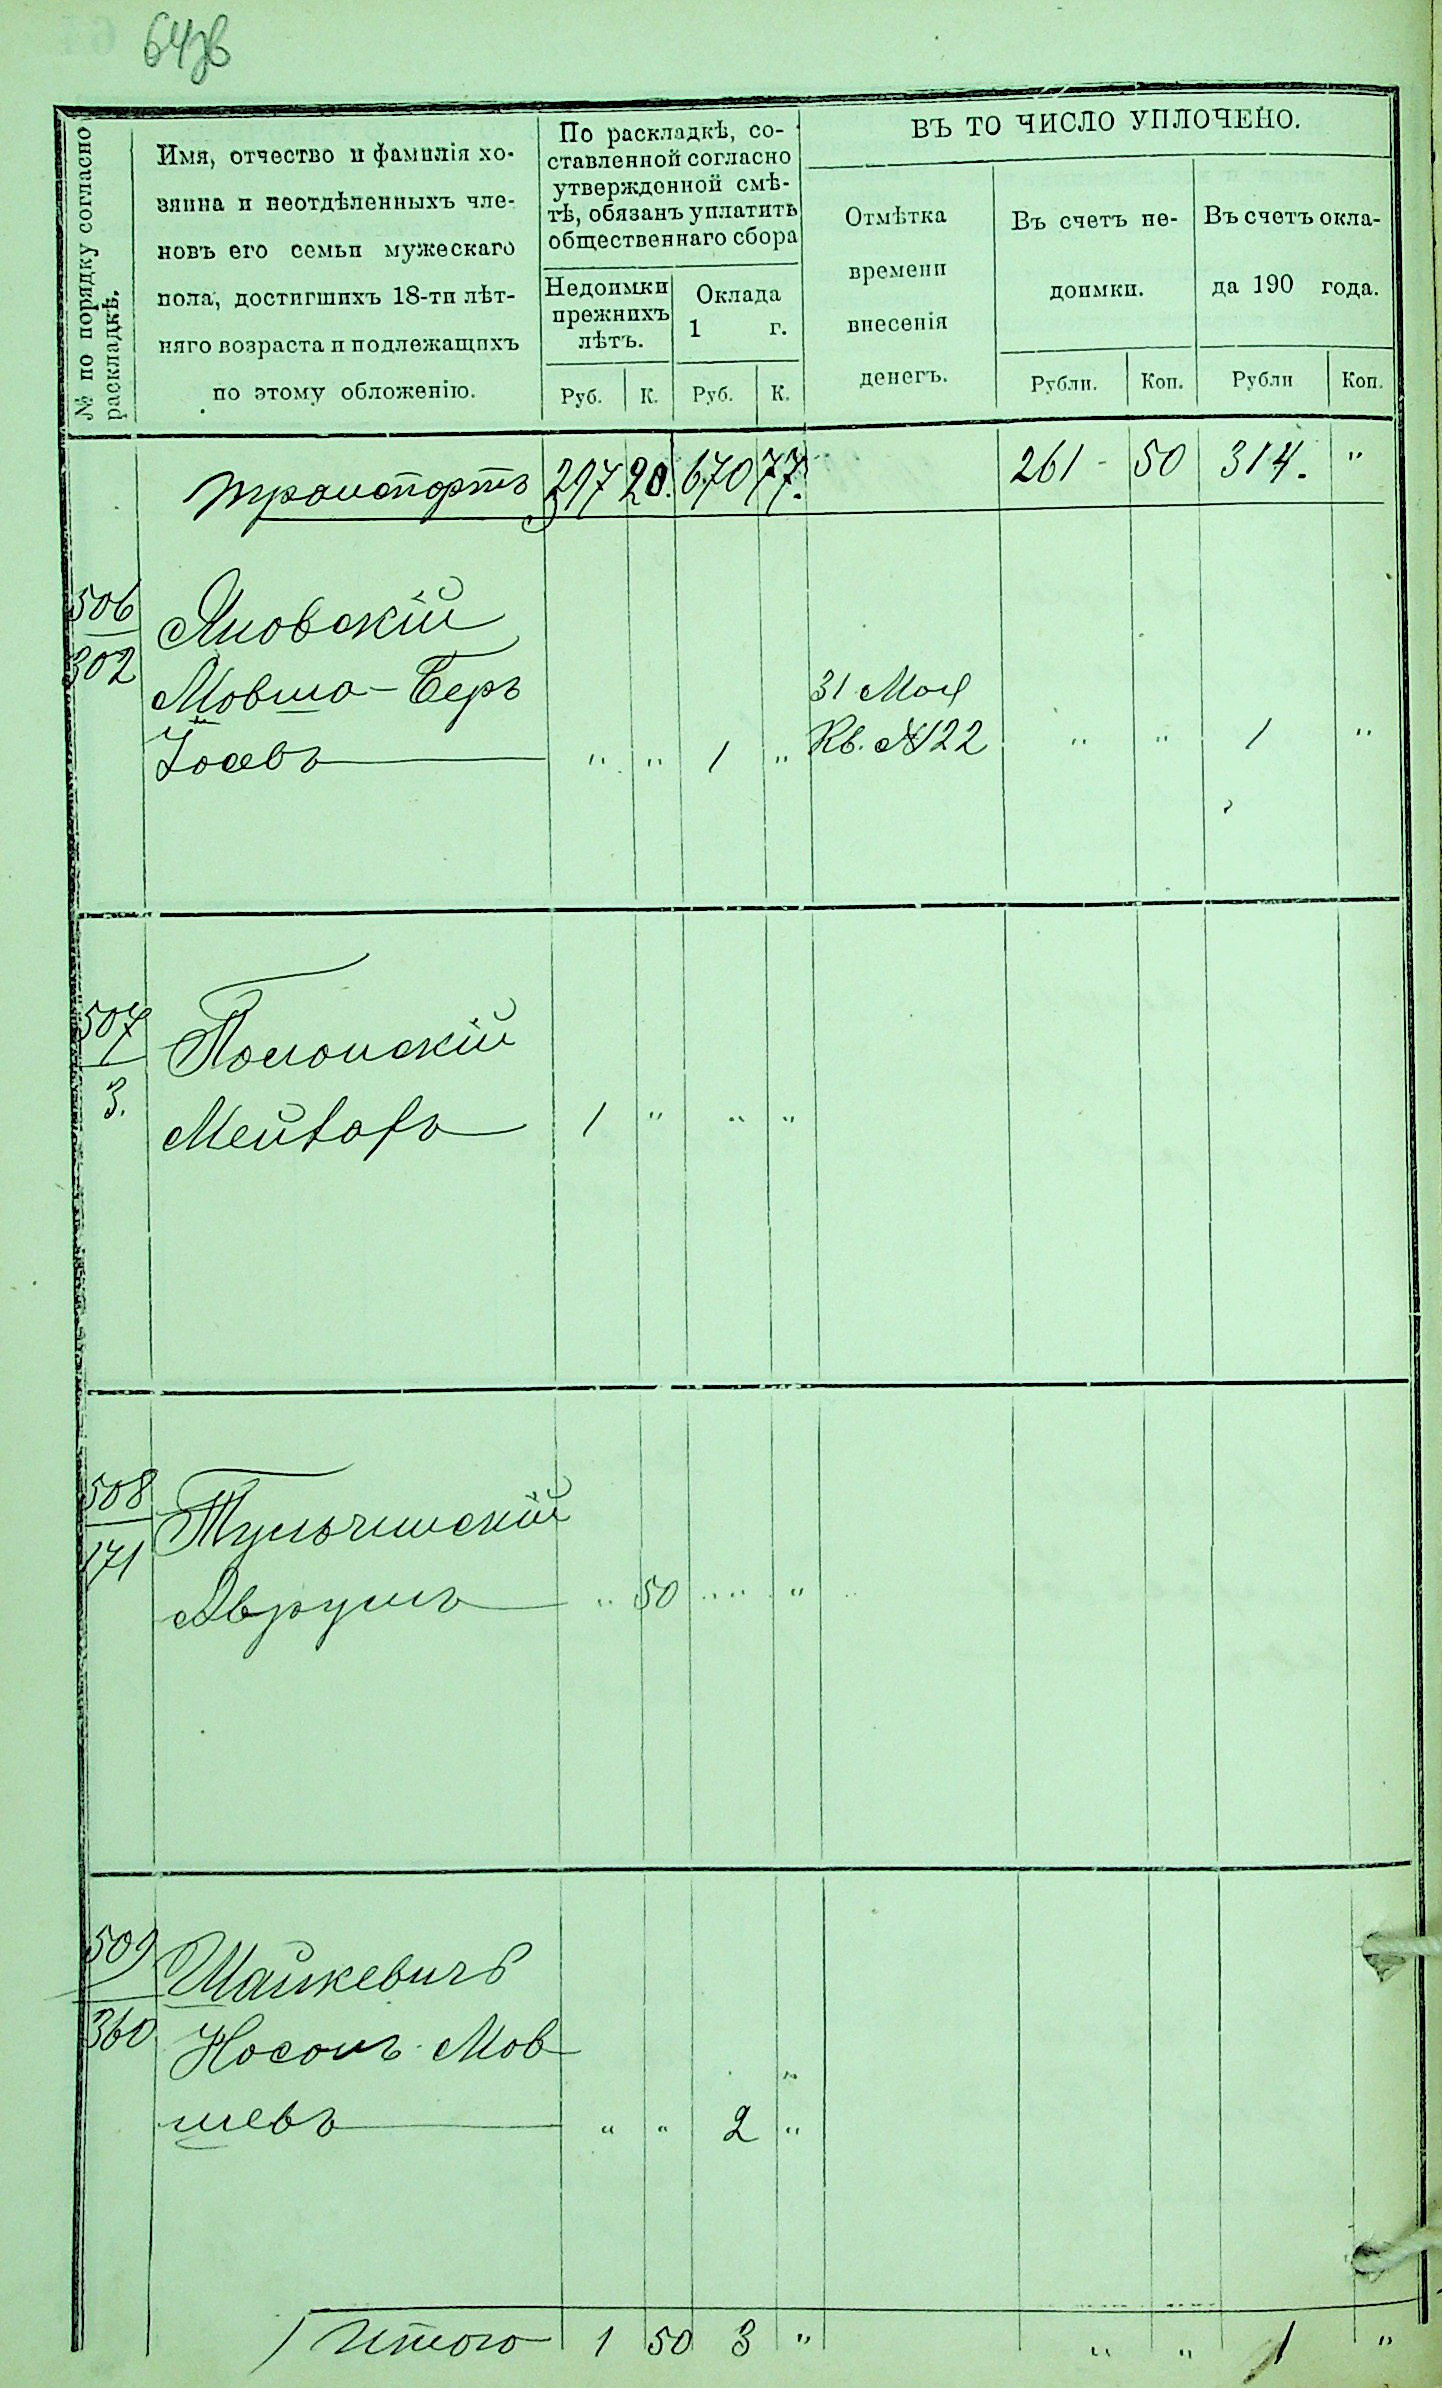 64об
№ по порядку согласно
раскладкѣ.
Имя, отчество и фамилія хо-
зяина и неотдѣленныхъ чле-
новъ его семьи мужескаго
пола, достигшихъ 18-ти лѣт-
няго возраста и подлежащихъ
по этому обложенію.
По раскладкѣ, со-
ставленной согласно
утвержденной смѣ-
тѣ, обязанъ уплатить
общественнаго сбора
Недоимки
прежнихъ
лѣтъ.
Оклада
1 г.
Руб. К. Руб. К.
ВЪ ТО ЧИСЛО УПЛОЧЕНО.
Отмѣтка
времени
внесенія
денегъ.
Въ счетъ не-
доимки.
Въ счетъ окла-
да 190 года.
Рубли. Коп. Рубли Коп.
Транспортъ 397 20. 670 77. 261 - 50 314. "
506
302
Яновскій
Мовша-Беръ 31 Мая
Іосевъ " " 1 " Кв. №122 " " 1 "
507
3.
Полонскій
Мейлахъ 1 " " "
508
171
Тульчинскій
Аврумъ " 50 " "
509
360
Шайкевичъ
Носонъ Мов
шевъ " " 2 "
Итого 1 50 3 " " " 1 "